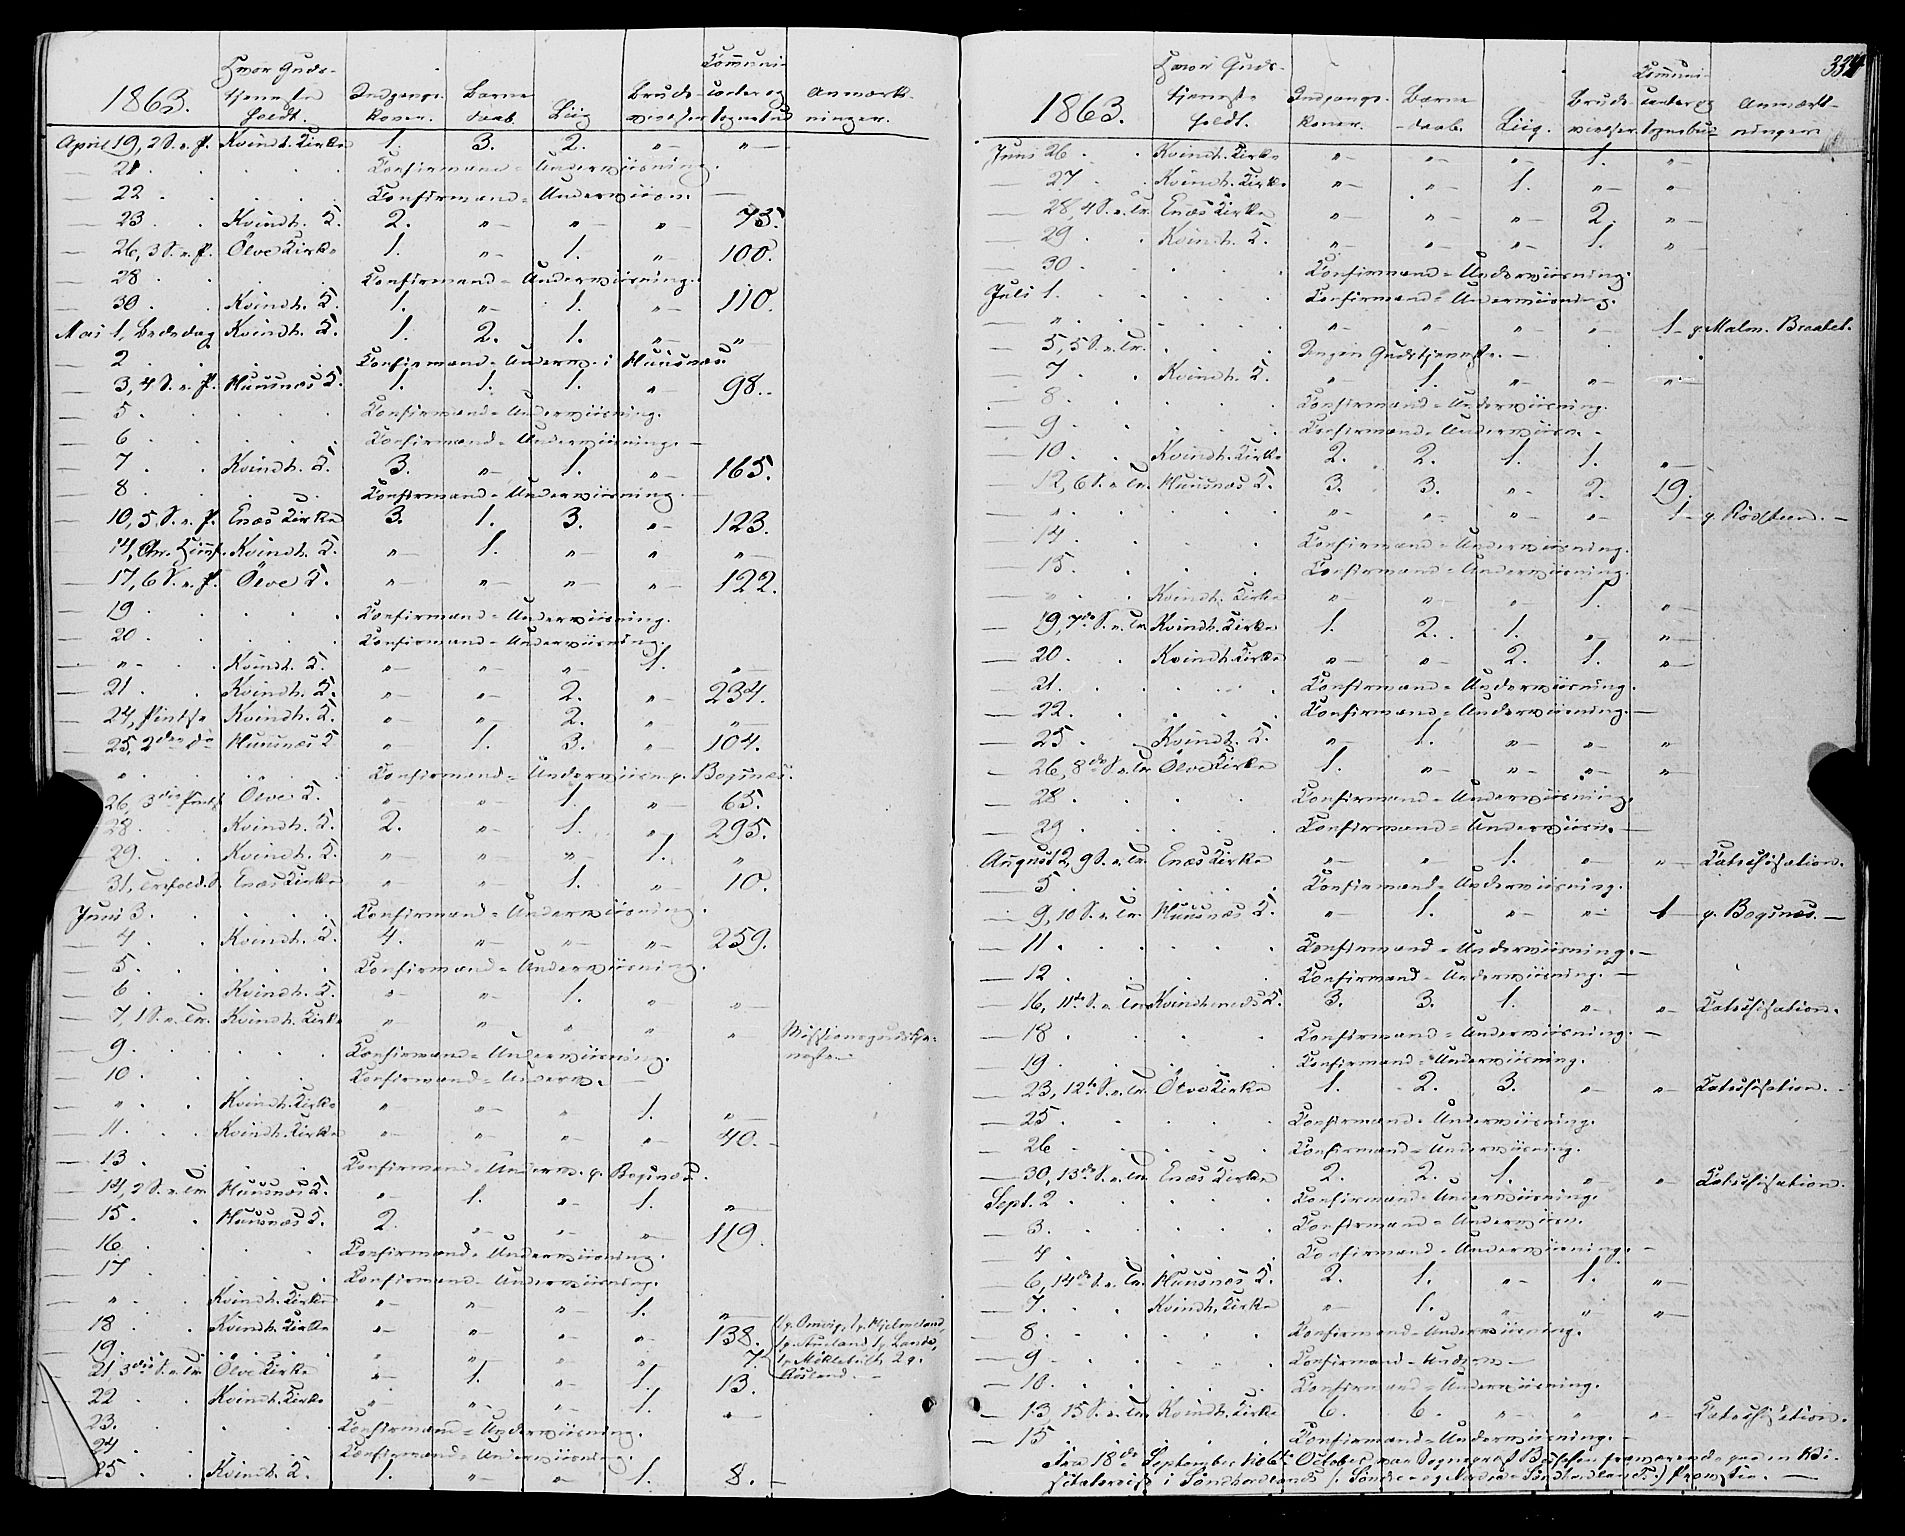 1863. Hvor Guds- tjeneste holdt. Indgangs- koner. Barne daab. Liig Brude- vielser Communi- canter og Sognebud Anmærk- ninger.
April 19, 2 S. e. P. Kvindh. Kirke 1. 3. 2. "— "—
— 21 . . . Confirmand-Underviisning.
— 22 . . . Confirmand-Underviisn. —
— 23 . . Kvindh. K. 2. "— "— "— 73.
— 26, 3 S. e. P. Ölve Kirke 1. "— 1. "— 100.
— 28 . . . Confirmand-Underviisning.
— 30 . Kvindh. K. 1. "— 1. "— 110.
Mai 1, Bededag Kvindh. K. 1. 2. 1. "— "—
— 2 . . Confirmand-Underv. i Huusnæs.
— 3, 4 S. e. P. Huusnæs K. 1. 1. 1. "— 98.
— 5 . . . Confirmand-Underviisning.
— 6 . . . Confirmand-Underviisning. —
— 7 . . Kvindh. K. 3. "— 1. "— 165.
— 8 . . . Confirmand-Underviisning. —
— 10, 5 S. e. P. Enæs Kirke 3. 1. 3. "— 123.
— 14, Chr. Himf. Kvindh. K. "— 1. "— "— "—
— 17, 6 S. e. P. Ölve K. "— "— "— "— 122.
— 19 . . . Confirmand-Underviisning.
— 20 . . . Confirmand-Underviisning.
— "— . . Kvindh. K. "— "— "— 1. "—
— 21 . . Kvindh. K. "— "— 2. "— 234.
— 24, Pintse Kvindh. K. "— "— 2. "— "—
— 25, 2den do Huusnæs K "— 1. 3. "— 104.
— " . . . Confirmand-Underviisn. p. Bogsnæs.
— 26, 3die Pintsd Ölve K. "— "— 1. "— 65.
— 28 . . Kvindh. K. 2. "— 1. "— 295.
— 29 . . Kvindh. K. "— "— "— 1. "
— 31, Trefold. S. Enæs Kirke "— "— 1. "— 10.
Juni 3 . . . Confirmand-Underviisning.
— 4 . . Kvindh. K. 4. "— "— "— 259.
— 5 . . . Confirmand-Underviisning.
— 6 . . Kvindh. K. "— "— 1. "— "—
— 7, 1 S. e. Tr. Kvindh. Kirke "— "— "— "— "— Missionsgudstje-
— 9 . . . Confirmand-Underviisning. neste. —
— 10 . . . Confirmand-Underv. —
— " . . Kvindh. Kirke "— "— " 1. "—
— 11 . . Kvindh. Kirke "— "— "— "— 40. —
— 13 . . . Confirmand-Underv. p. Bogsnæs.
— 14, 2 S. e. Tr. Huusnæs K. "— 1. "— 1. "—
— 15 . Huusnæs K. 2. "— "— "— 119.
— 16. . . Confirmand-Underviisning.
— 17 . . . Confirmand-Underviisning.
— " . Kvindh. Kirke "— "— "— 1. "—
— 18 . Kvindh. Kirke "— "— "— "— 138. 1 p. Omvig, 1 p. Hjelmeland,
— 19. . . . "— "— "— "— 7 1 p. Auneland 1 p. Lande, 1 p. Mÿklebust, 2 p.
— 21 3die S. e. Tr. Ölve Kirke "— 1. "— 1. 13. Aÿsland. —
— 22 . Kvindh. Kirke "— "— "— 1. "—
— 23. . . . Confirmand-Underviisning.
— 24 . . . Confirmand-Underviisning.
— 25 . . Kvindh. K. 1. "— "— 1. 8. —
334
1863. Hvor Guds- tjeneste holdt. Indgangs- koner. Barne -daab. Liig. Brude- vielser. Communi- canter og Sognebud Anmærk- ninger.
Juni 26 . . Kvindh. Kirke "— "— "— 1. "—
— 27 . . Kvindh. Kirke "— "— 1. "— "—
— 28, 4 S. e. Tr. Enæs Kirke "— "— "— 2. "—
— 29 . . Kvindh. K. "— "— "— 1. "—
— 30 . . . Confirmand-Underviisning.
Juli 1. . . . Confirmand-Underviisning.
— " . . . "— "— "— "— 1 — p. Malm. Braatet.
— 5, 5 S. e. Tr. . . Ingen Gudstjeneste. —
— 7 . . Kvindh. K. "— 1. "— "— "—
— 8 . . . Confirmand-Underviisning.
— 9 . . . Confirmand-Underviisn. —
— 10 . . Kvindh. Kirke 2. 2. 1. 1. "—
— 12, 6 S. e. Tr. Huusnæs K. 3. 3. "— 2. 19.
— " . . . "— "— "— "— 1 — p. Rödsteen. —
— 14 . . . Confirmand-Underviisning.
— 15 . . . Confirmand-Underviisning.
— " . . Kvindh. Kirke "— "— "— 1. "—
— 19, 7de S. e. Tr. Kvindh. Kirke 1. 2. 1. "— "—
— 20 . . Kvindh. Kirke "— "— 2. 1. "—
— 21 . . . Confirmand-Underviisning.
— 22. . . . Confirmand-Underviisning. —
— 25 . . Kvindh. K. "— 1. "— "— "—
— 26, 8de S. e. Tr. Ölve Kirke 1. "— "— "— "—
— 28 . . . Confirmand-Underviisning.
— 29 . . . Confirmand-Underviisn. —
August 2, 9 S. e. Tr. Enæs Kirke "— "— 1. "— "— Catechisation.
— 5 . . . Confirmand-Underviisning.
— 9, 10 S. e. Tr. Huusnæs K. "— 1. "— "— 1 — p. Bogsnæs. —
— 11 . . . Confirmand-Underviisning. —
— 12 . . . Confirmand-Underviisning. —
— 16, 11te S. e. Tr. Kvindherreds K. 3. 3. 1. "— "— Catechisation.
— 18 . . . Confirmand-Underviisning. —
— 19 . . . Confirmand-Underviisning.
— 23, 12te S. e. Tr. Ölve Kirke 1. 2. 3. "— "— Catechisation. —
— 25 . . . Confirmand-Underviisning.
— 26 . . . Confirmand-Underviisning.
— 30, 13de S. e. Tr. Enæs Kirke 2. 2. 1. "— "— Catechisation.
Sept. 2 . . . Confirmand-Underviisning.
— 3 . . . Confirmand-Underviisn.
— 4 . . . Confirmand-Underviisning. —
— 6, 14de S. e. Tr. Huusnæs K. 2. 1. "— 1. "—
— 7. . . Kvindh. Kirke "— 1. "— "— "—
— 8 . . . Confirmand-Underviisning.
— 9 . . . Confirmand-Underv. —
— 10 . . . Confirmand-Underviisning.
— 13, 15 S. e. Tr. Kvindh. Kirke 6. 6. "— "— "— Catechisation.
— 15 . . . Confirmand-Underviisning. —
Fra 18de September til 6te October var Sogneprest fraværende paa en Vi-
sitatsreise i Söndhordlands (: Söndre- og Nordre-Söndhordlands :) Provstie. —